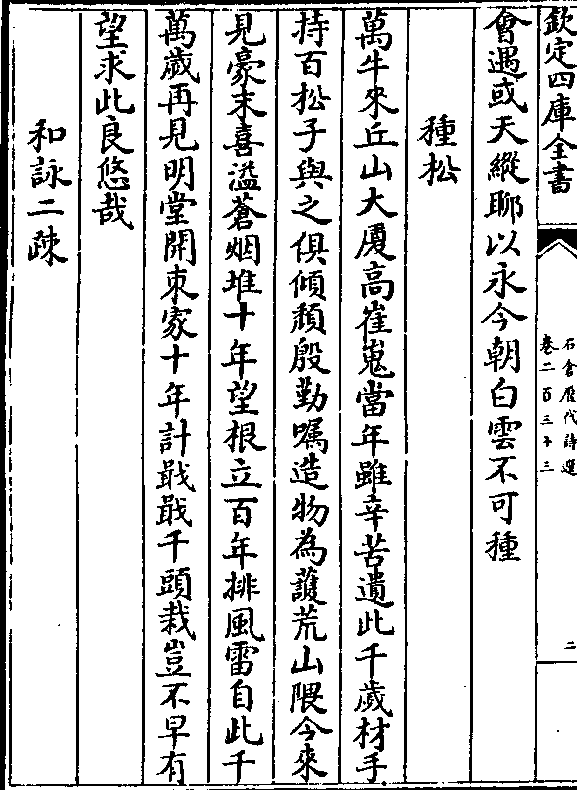 欽定四庫全書
石倉歷代詩選
卷二百三十三
二
會遇或天縱聊以永今朝白雲不可種
種松
萬牛來丘山大厦高崔嵬當年雖辛苦遺此千歲材手
持百松子與之俱傾頹殷勤囑造物為護荒山隈今來
見豪末喜溢蒼烟堆十年望根立百年排風雷自此千
萬歲再見明堂開東家十年計戢戢千頭栽豈不早有
望求此良悠哉
和詠二疎